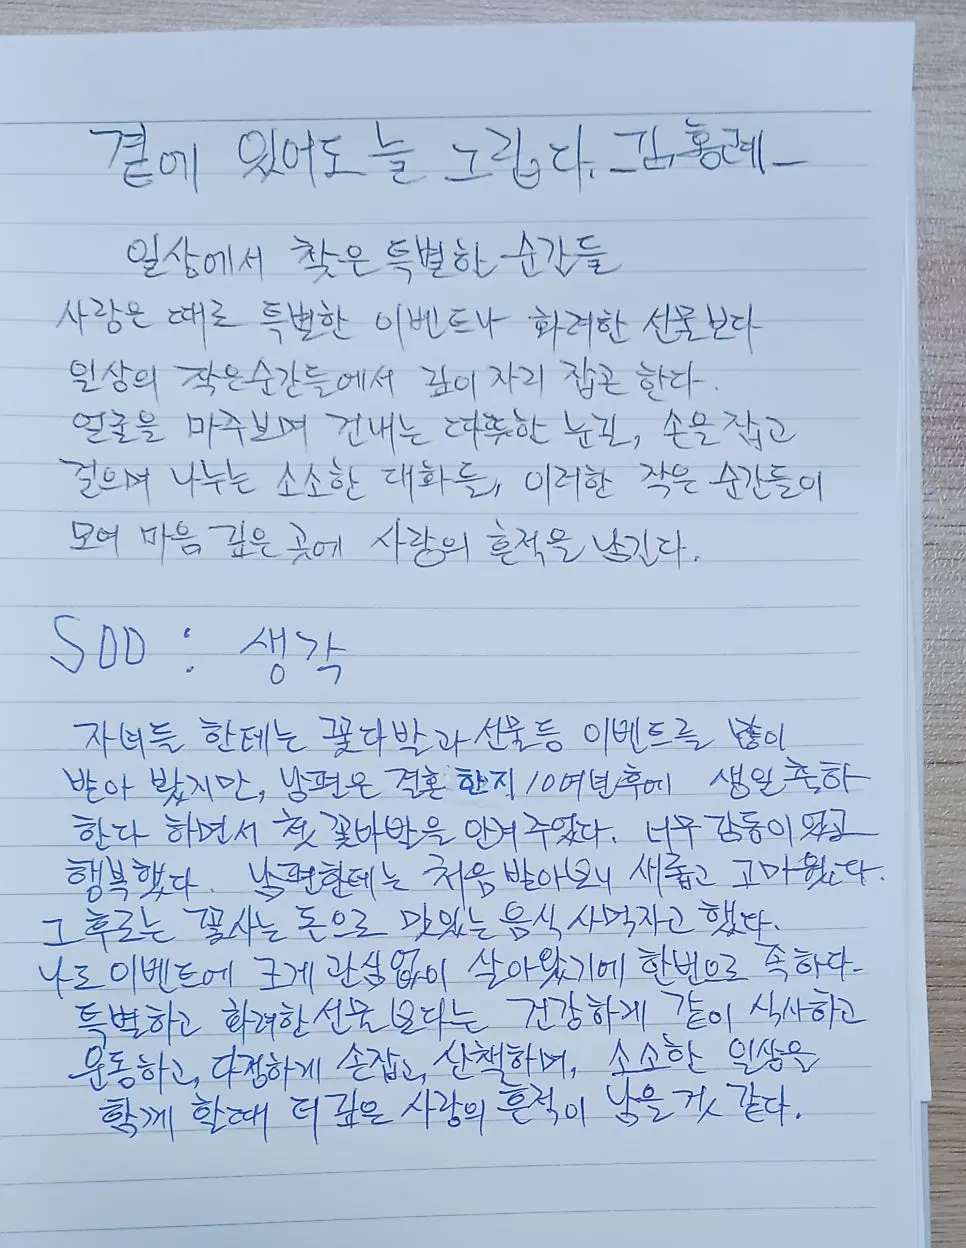 곁에 있어도 늘 그립다. _김홍례_
일상에서 찾은 특별한 순간들
사랑은 때로 특별한 이벤트나 화려한 선물보다
일상의 작은순간들에서 깊이 자리 잡곤 한다.
얼굴을 마주보며 건내는 따뜻한 눈빛, 손을 잡고
걸으며 나누는 소소한 대화들, 이러한 작은 순간들이
모여 마음 깊은 곳에 사랑의 흔적을 남긴다.
SOO : 생각
자녀들 한테는 꽃다발과 선물등 이벤트를 많이
받아 봤지만, 남편은 결혼 한지 10여년후에 생일 축하
한다 하면서 첫 꽃바발을 안겨 주었다. 너무 감동이였고
행복했다. 남편한테는 처음 받아보니 새롭고 고마웠다.
그 후로는 꽃사는 돈으로 맛있는 음식 사먹자고 했다.
나도 이벤트에 크게 관심없이 살아왔기에 한번으로 족하다.
특별하고 화려한 선물 보다는 건강하게 같이 식사하고
운동하고, 다정하게 손잡고, 산책하며, 소소한 일상을
함께 할때 더 깊은 사랑의 흔적이 남을 것 같다.